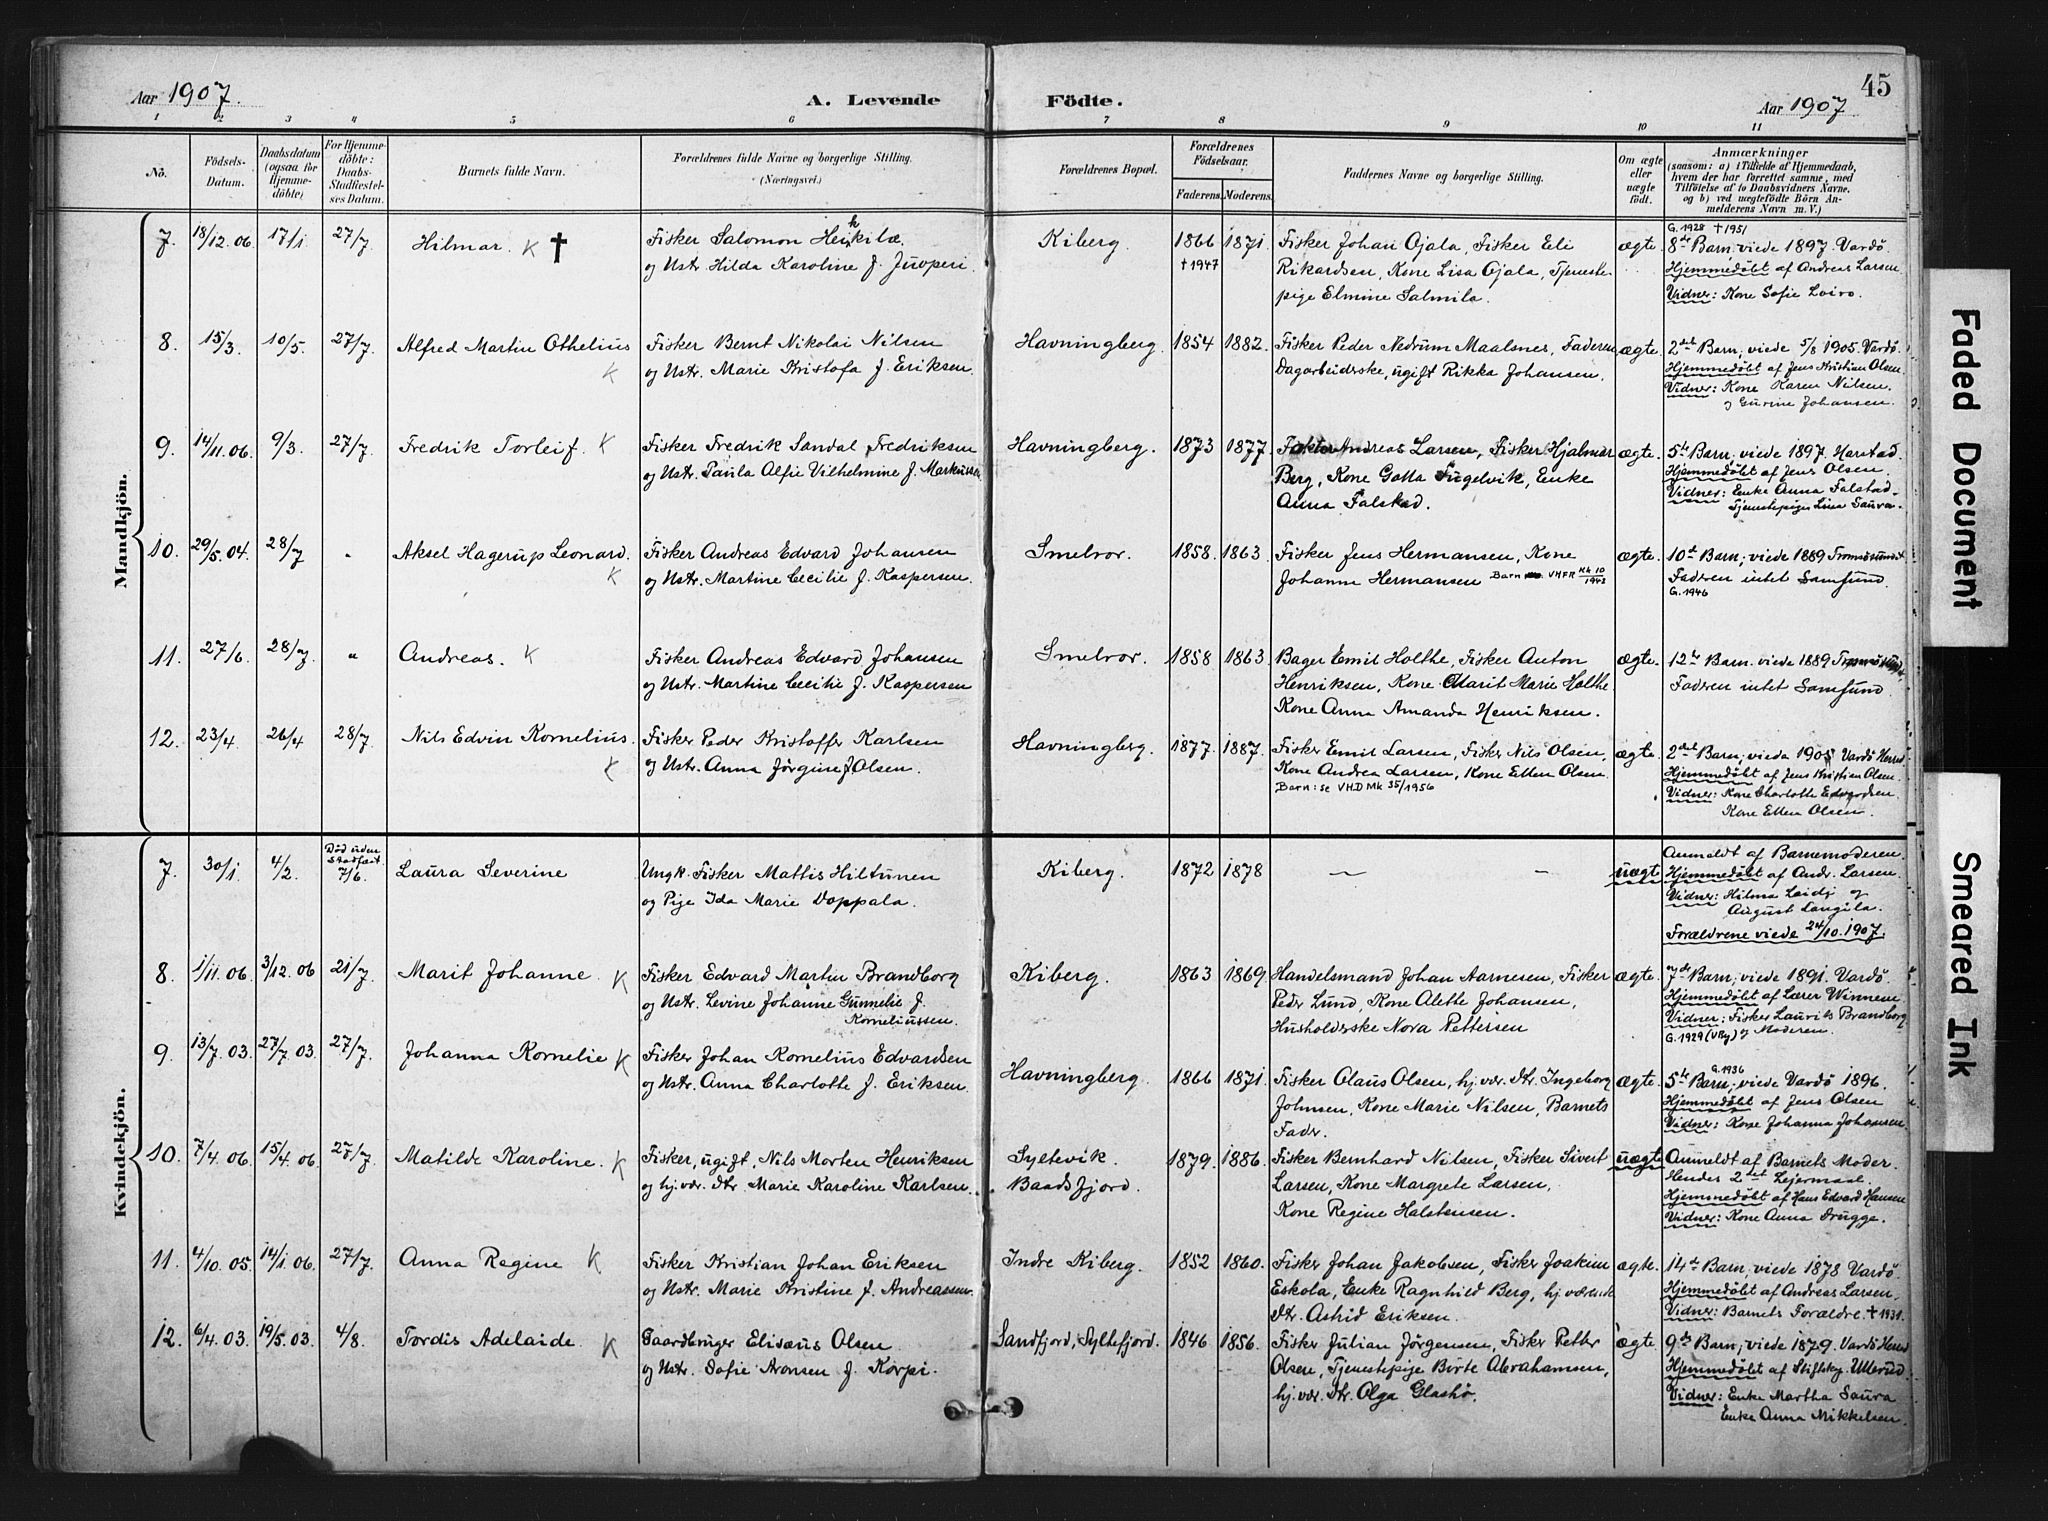 Aar 1907.
A. Levende Födte.
45
Aar 1907
1 2 3 4 5 6 7 8 9 10 11
No.
Födsels-Datum.
Daabsdatum (ogsaa for Hjemmedöbte)
For Hjemmedöbte: Daabs-Stadfæstelses Datum.
Barnets fulde Navn.
Forældrenes fulde Navne og borgerlige Stilling.
(Næringsvei.)
Forældrenes Bopæl.
Forældrenes Födselsaar.
Faderens. Moderens.
Faddernes Navne og borgerlige Stilling.
Om ægte eller uægte födt.
Anmærkninger
(saasom: a) i Tilfælde af Hjemmedaab,
hvem der har forrettet samme, med
Tilföielse af to Daabsvidners Navne,
og b) ved uægtefödte Börn Anmelderens Navn m. V.)
Mandkjön.
7. 18/12.06. 17/1. 27/7. Hilmar. K †
Fisker Salomon Heikkilæ.
og Hstr. Hilda Karoline f. Juoperi.
Kiberg. 1866 †1947 1871.
Fisker Johan Ojala, Fisker Eli
Rikardsen, Kone Lisa Ojala, Tjeneste
pige Elmine Salmila.
ægte.
G. 1928 †1951
8de Barn, viede 1897. Vardø
Hjemmedøbt af Andreas Larsen.
Vidner: Kone Sofie Loiro.
8. 15/3. 10/5. 27/7. Alfred Martin Othelius K
Fisker Bernt Nikolai Nilsen
og Hstr. Marie Kristofa f. Eriksen.
Havningberg. 1854 1882.
Fisker Peder Nedrum Maalsnes, Faderen
Dagarbeiderske, ugift Rikka Johansen.
ægte.
2det Barn; viede 5/8 1905. Vardø.
Hjemmedøbt af Jens Kristian Olsen.
Vidner: Kone Karen Nilsen.
og Gurine Johansen.
9. 14/11.06. 9/3. 27/7. Fredrik Torleif. K
Fisker Fredrik Sandal Fredriksen
og Hstr. Paula Alfie Vilhelmine f. Markussen
Havningberg. 1873 1877.
Faktor Andreas Larsen, Fisker Hjalmar
Berg, Kone Gotta Fugelvik, Enke
Anna Falstad.
ægte.
5te Barn, viede 1897. Harstad.
Hjemmedøbt af Jens Olsen.
Vidner: Enke Anna Falstad
Tjenestepige Lina Saura.
10. 29/5.04. 28/7 " Aksel Hagerup Leonard. K
Fisker Andreas Edvard Johansen
og Hstr. Martine Cecilie f. Kaspersen.
Smelror. 1858. 1863.
Fisker Jens Hermansen, Kone
Johanna Hermansen Barn VHFR Mk 10/1948
ægte.
10de Barn; viede 1889 Tromsøsundet
Faderen intet Samfund.
G. 1946
11. 27/6. 28/7. " Andreas. K
Fisker Andreas Edvard Johansen
og Hstr. Martine Cecilie f. Kaspersen
Smelror. 1858 1863.
Bager Emil Holthe, Fisker Anton
Henriksen, Kone Marit Marie Holthe.
Kone Anna Amanda Henriksen.
ægte.
12te Barn. viede 1889
Faderen intet Samfund.
12. 23/4. 26/4 28/7. Nils Edvin Kornelius. K
Fisker Peder Kristoffer Karlsen
og Hstr. Anna Jørgine f Olsen.
Havningberg. 1877. 1887.
Fisker Emil Larsen, Fisker Nils Olsen,
Kone Andrea Larsen, Kone Ellen Olsen.
Barn: se VHD Mk 35/1956
ægte.
2det Barn, vieda 1905 Vardø Herred
Hjemmedøbt af Jens Kristian Olsen.
Vidner: Kone Charlotte Edvardsen.
Kone Ellen Olsen.
Kvindekjön.
7. 30/1. 4/2. Død uden stadfæst. 7/6. Laura Severine
Ungk. Fisker Mattis Hiltunen
og Pige Ida Marie Doppala.
Kiberg. 1872 1878 — —
uægte
Anmeldt af Barnemoderen.
Hjemmedøbt af Andr. Larsen.
Vidner: Hilma Laidi og
August Langila.
Forældrene viede 24/10.1907.
8. 1/11.06. 3/12.06 21/7. Marit Johanne. K
Fisker Edvard Martin Brandborg
og Hstr. Levine Johanne Gunnelie f.
Korneliussen.
Kiberg. 1863 1869.
Handelsmand Johan Aarnesen, Fisker
Peder Lund, Kone Alette Johansen,
Husholderske Nora Pettersen
ægte.
7de Barn; viede 1891. Vardø
Hjemmedøbt af Lærer Winnem
Vidner: Fisker Laurits Brandborg
G.1929 (VBy) og Moderen.
9. 13/7.03. 27/7.03. 27/7. Johanna Kornelie K
Fisker Johan Kornelius Edvardsen
og Hstr. Anna Charlotte f. Eriksen.
Havningberg. 1866 1871.
Fisker Olaus Olsen, hj.vær. Dtr. Ingeborg
Johnsen, Kone Marie Nilsen, Barnets
Fader.
ægte.
G.1936
5te Barn; viede Vardø 1896.
Hjemmedøbt af Jens Olsen
Vidner: Kone Johanna Johansen.
10. 7/4.06. 15/4.06 27/7. Matilde Karoline. K
Fisker, ugift, Nils Morten Henriksen
og hj.vær. Dtr. Marie Karoline Karlsen.
Syltevik.
Baadsfjord. 1879. 1886.
Fisker Bernhard Nilsen, Fisker Sivert
Larsen, Kone Margrete Larsen,
Kone Regine Halstensen.
uægte
Anmeldt af Barnets Moder.
Hendes 2det Lejermaal.
Hjemmedøbt af Hans Edvard Hansen
Vidner: Kone Anna Drugge.
11. 4/10.05. 14/1.06. 27/7. Anna Regine K
Fisker Kristian Johan Eriksen
og Hstr. Marie Kristine f. Andreassen.
Indre Kiberg. 1852 1860.
Fisker Johan Jakobsen, Fisker Joakim
Eskola, Enke Ragnhild Berg, hj.værende
Dtr. Astrid Eriksen.
ægte.
14de Barn, viede 1878 Vardø.
Hjemmedøbt af Andreas Larsen,
Vidner: Barnets Forældre. †1931.
12. 6/4.03. 19/5.03. 4/8. Tordis Adelaide. K
Gaardbruger Elisæus Olsen
og Hstr. Sofie Aronsen f. Korpi.
Sandfjord, Syltefjord. 1846 1856.
Fisker Julian Jørgensen, Fisker Petter
Olsen, Tjenestepige Børte Abrahamsen,
hj.vær. Dtr. Olga Glashø.
ægte.
9de Barn; viede 1879. Vardø Herred
Hjemmedøbt af Stiftskap. Ullerud.
Vidner: Enke Martha Saura
Enke Anna Mikkelsen.
Faded Document
Smeared Ink